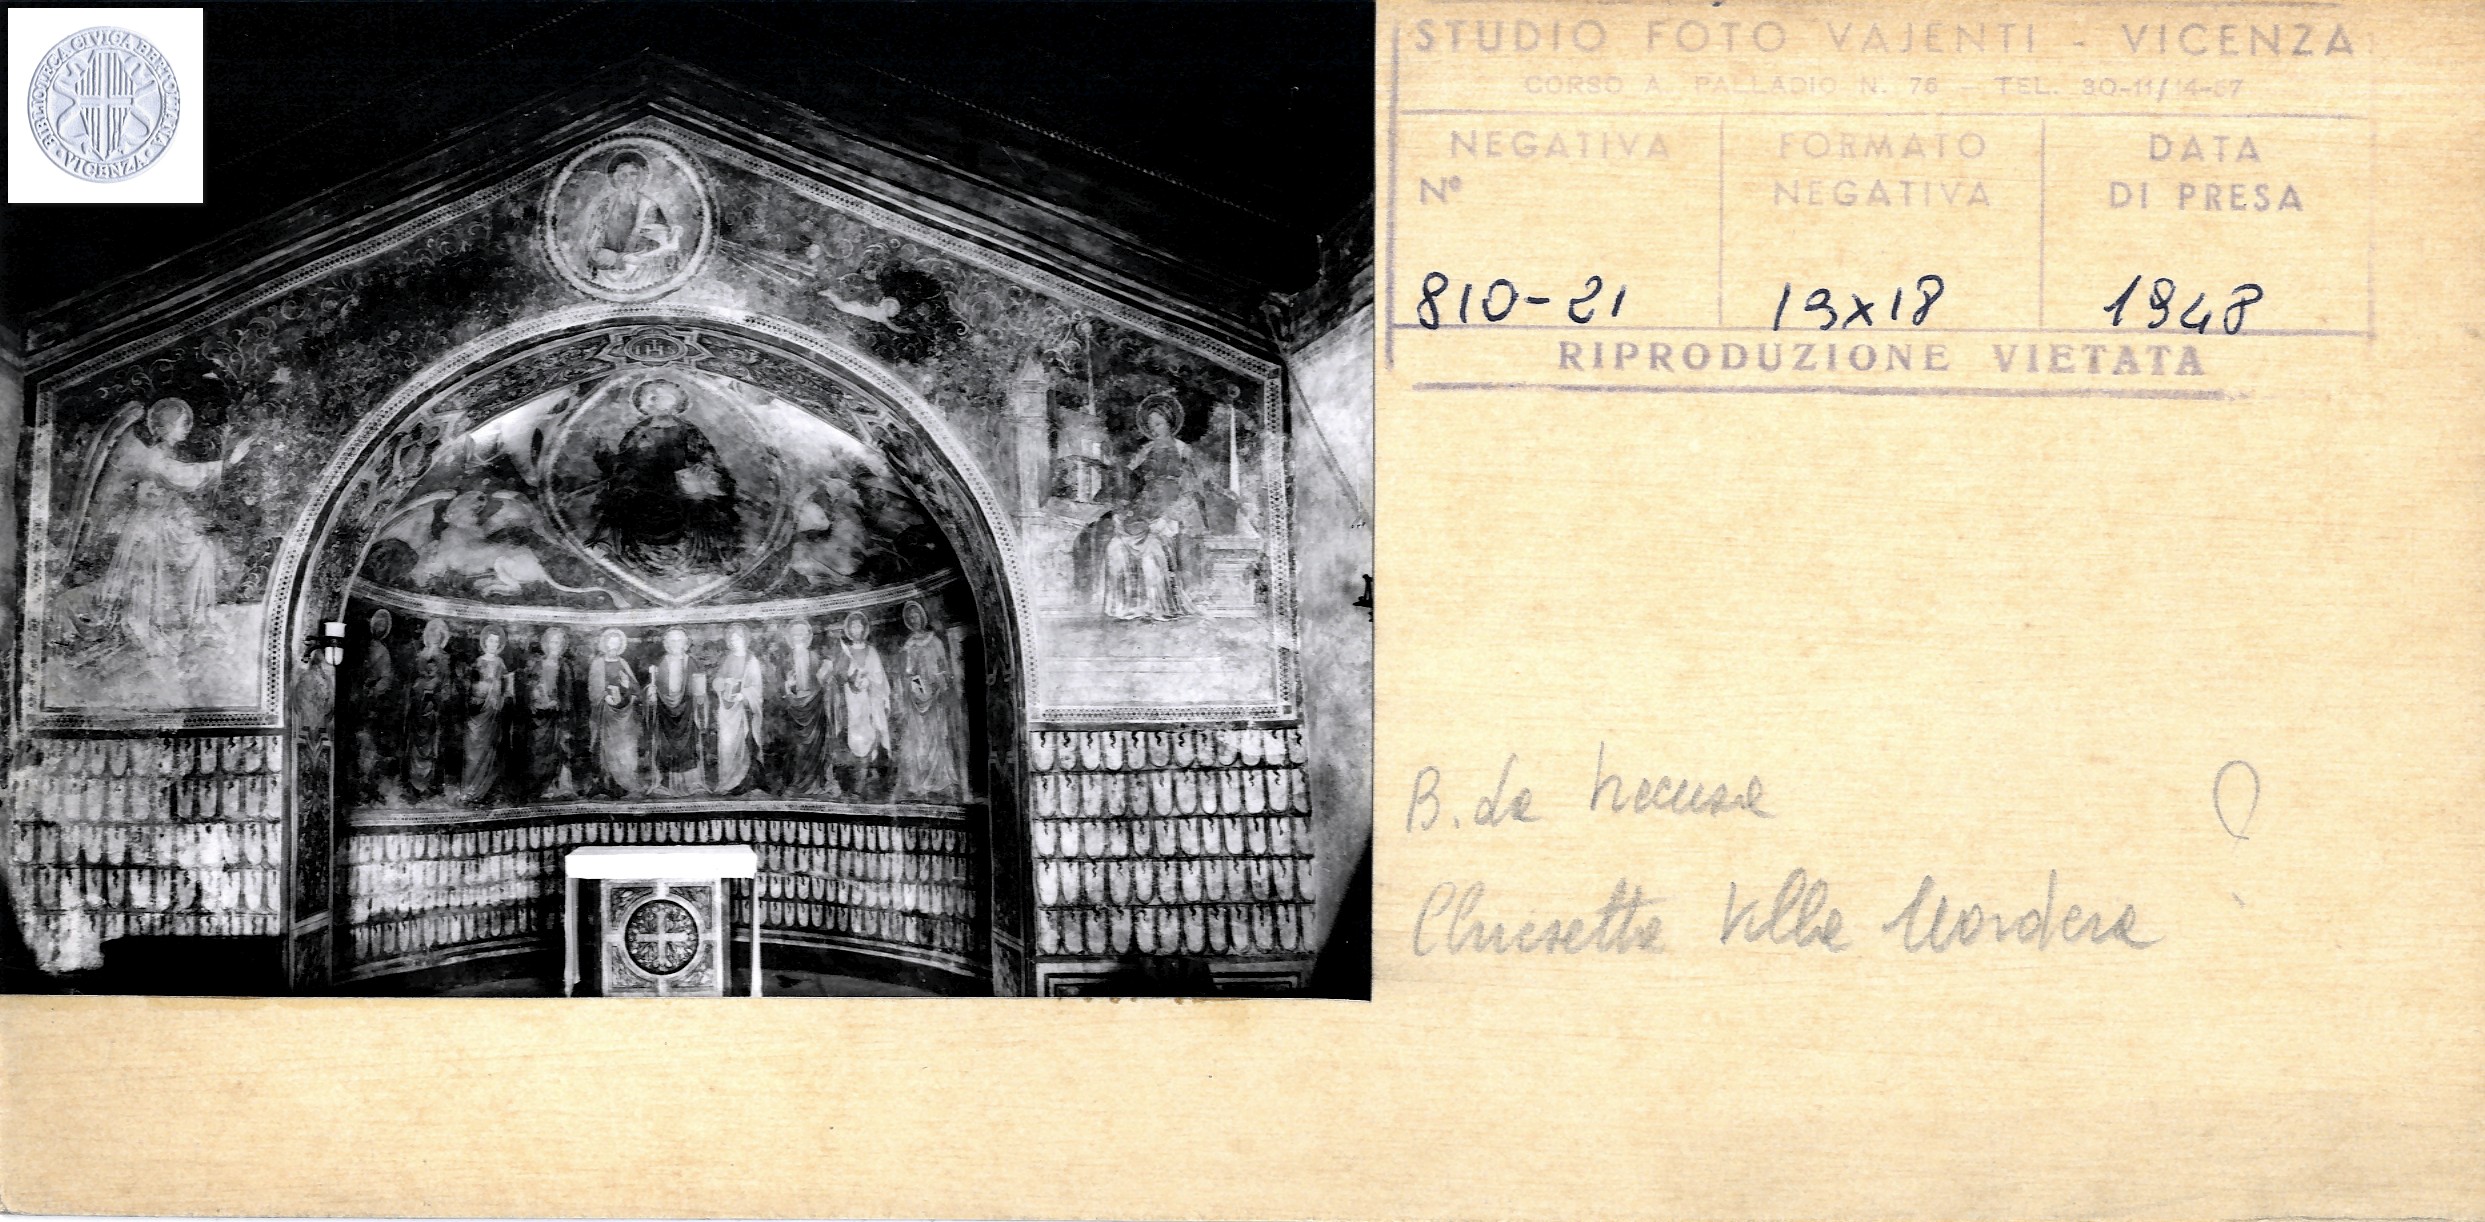 BIBLIOTECA CIVICA BERTOLIANA · VICENZA ·
STUDIO FOTO VAJENTI - VICENZA
CORSO A. PALLADIO N. 76 - TEL. 30-11/14-67
NEGATIVA Nº
FORMATO NEGATIVA
DATA DI PRESA
810-21
13x18
1948
RIPRODUZIONE VIETATA
B. da
Chiesetta Villa